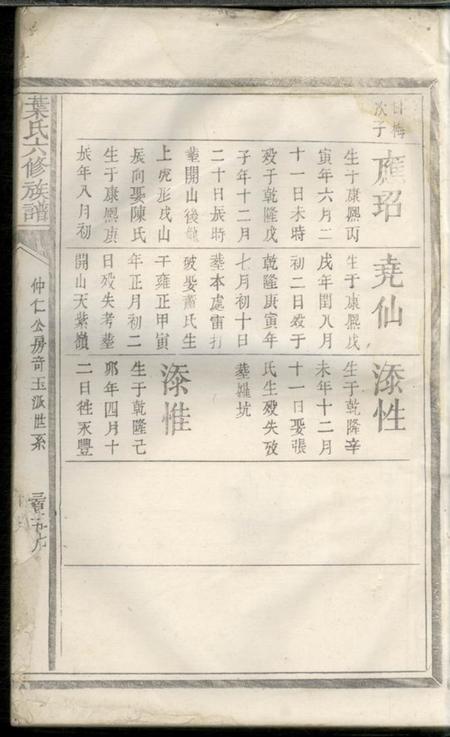 葉氏六修族譜
仲仁公房奇玉派世系
日梅
次子
應玿
生于康熙丙
寅年六月二
十一日未時
歿于乾隆戊
子年十二月
二十日辰時
葬開山後龍
上虎形戌山
辰向娶陳氏
生于康熙庚
辰年八月初
堯仙
生于康熙戊
戌年閏八月
初二日歿于
乾隆庚寅年
七月初十日
葬本處雷打
破娶蕭氏生
于雍正甲寅
年正月初二
日歿失考葬
開山天紫嶺
添性
生于乾隆辛
未年十二月
十一日娶張
氏生歿失攷
葬羅坑
添惟
生于乾隆己
卯年四月十
二日徃永豐